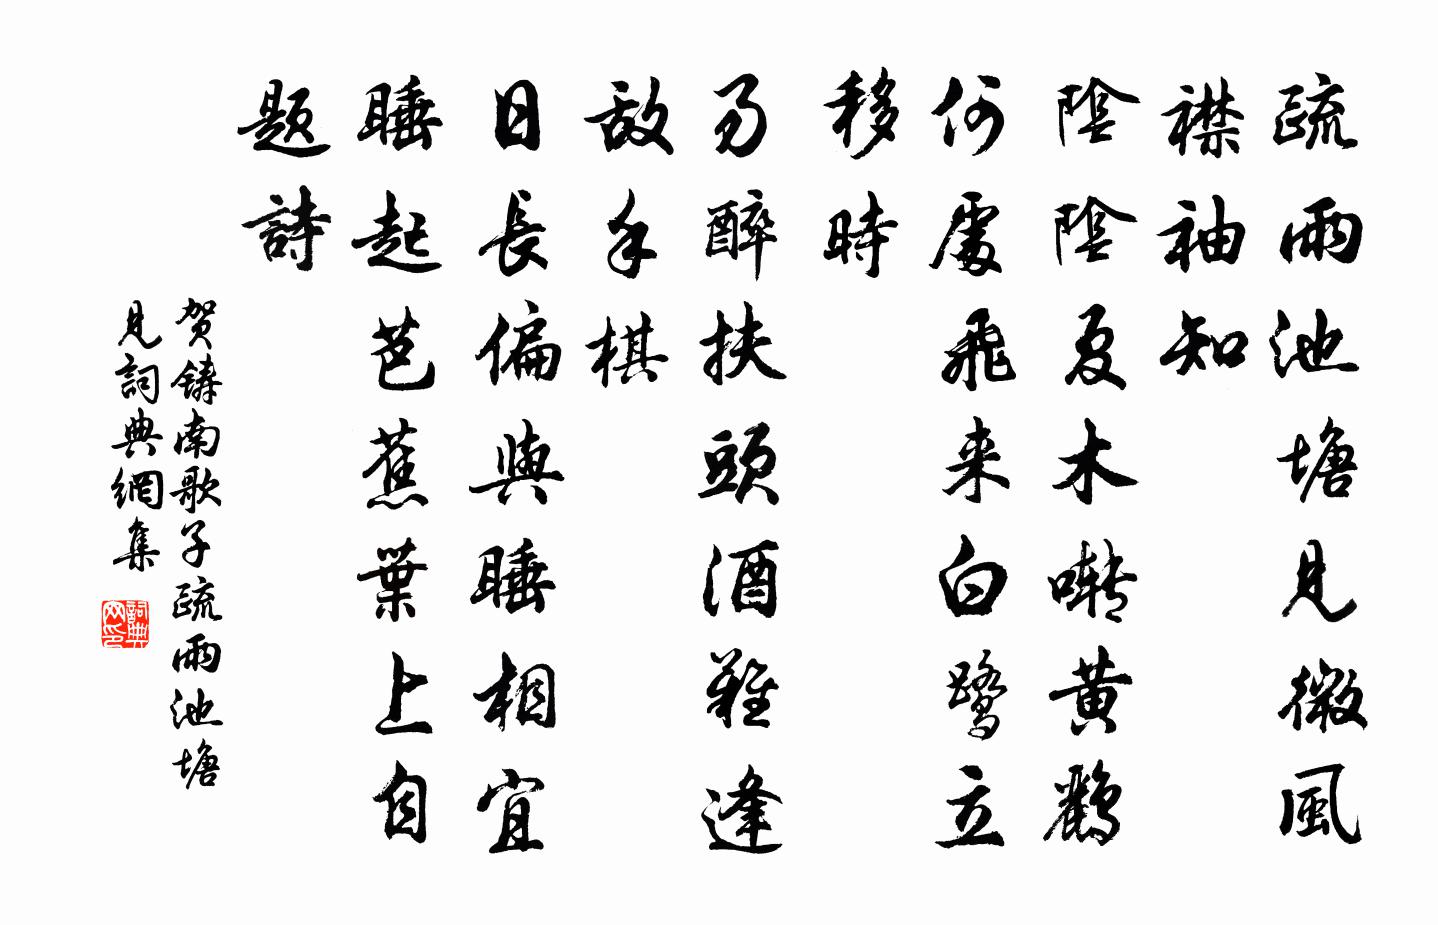 疏雨池塘見微風
襟袖知
陰陰夏木囀黄鸝
何處飛来白鷺立
移時
易醉扶頭酒難逢
敌手棋
日長偏與睡相宜
睡起芭蕉葉上自
題詩
贺鑄南歌子疏雨池塘
見詞典網集
詞典网印